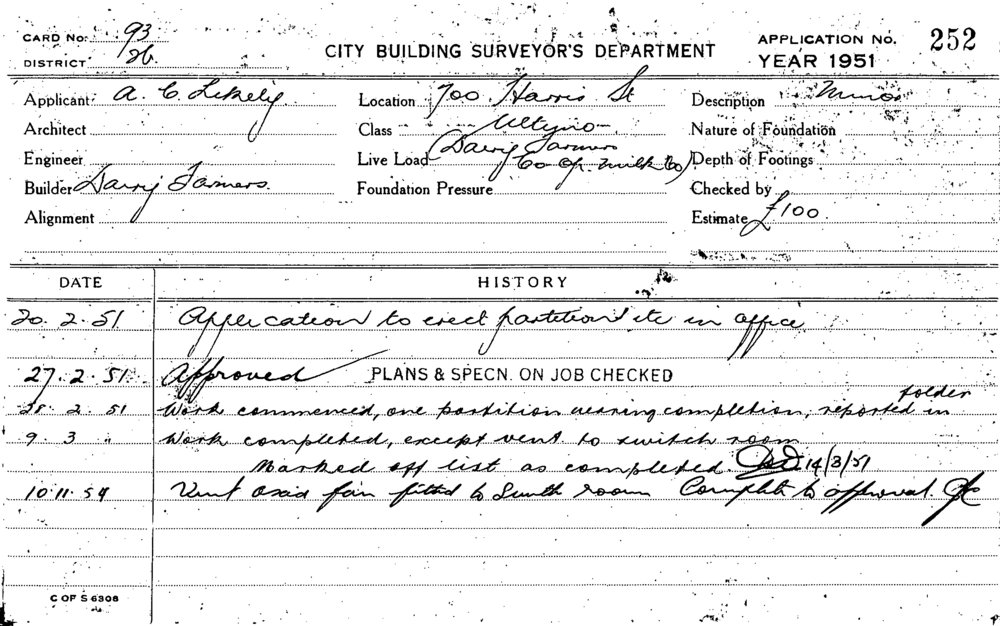 CARD No. 93
DISTRICT 26.
CITY BUILDING SURVEYOR'S DEPARTMENT
APPLICATION No. 252
YEAR 1951
Applicant A. C. Likely
Location 700 Harris St
Description Minor
Architect
Class Ultimo
Nature of Foundation
Engineer
Live Load (Dairy Farmers
Co Op. Milk Co)
Depth of Footings
Builder Dairy Farmers.
Foundation Pressure
Checked by
Alignment
Estimate £100
DATE HISTORY
20. 2. 51 Application to erect partition etc in office
27. 2. 51 Approved PLANS & SPECN. ON JOB CHECKED
28. 2. 51 Work commenced, one partition nearing completion, reported in folder
9. 3 " Work completed, except vent. to switch room
Marked off list as completed. 14/3/51
10. 11. 54 Vent axia fan fitted to Switch room Complete to approval.
C OF S 6308